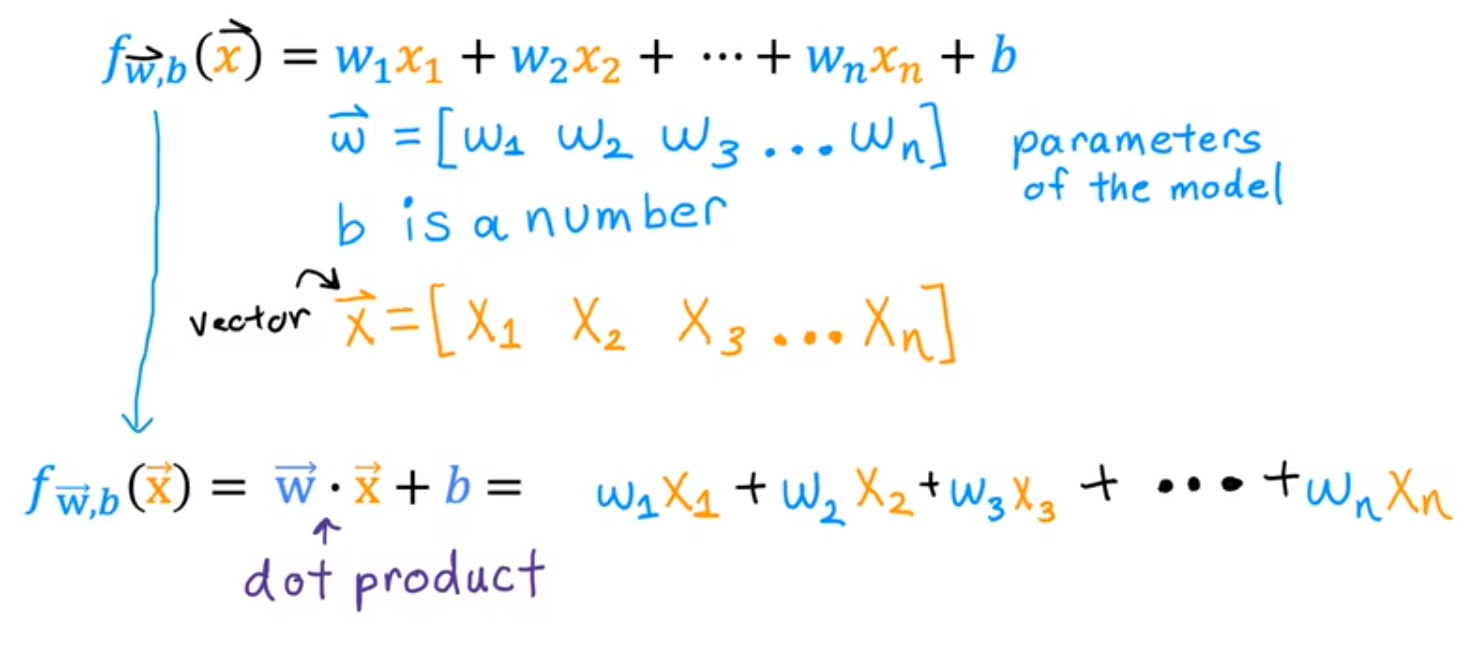 f_{w⃗,b}(x⃗) = w₁x₁ + w₂x₂ + ⋯ + wₙxₙ + b
w⃗ = [w₁ w₂ w₃ ... wₙ] parameters
of the model
b is a number
vector x⃗ = [x₁ x₂ x₃ ... xₙ]
f_{w⃗,b}(x⃗) = w⃗ · x⃗ + b = w₁x₁ + w₂x₂ + w₃x₃ + ... + wₙxₙ
dot product